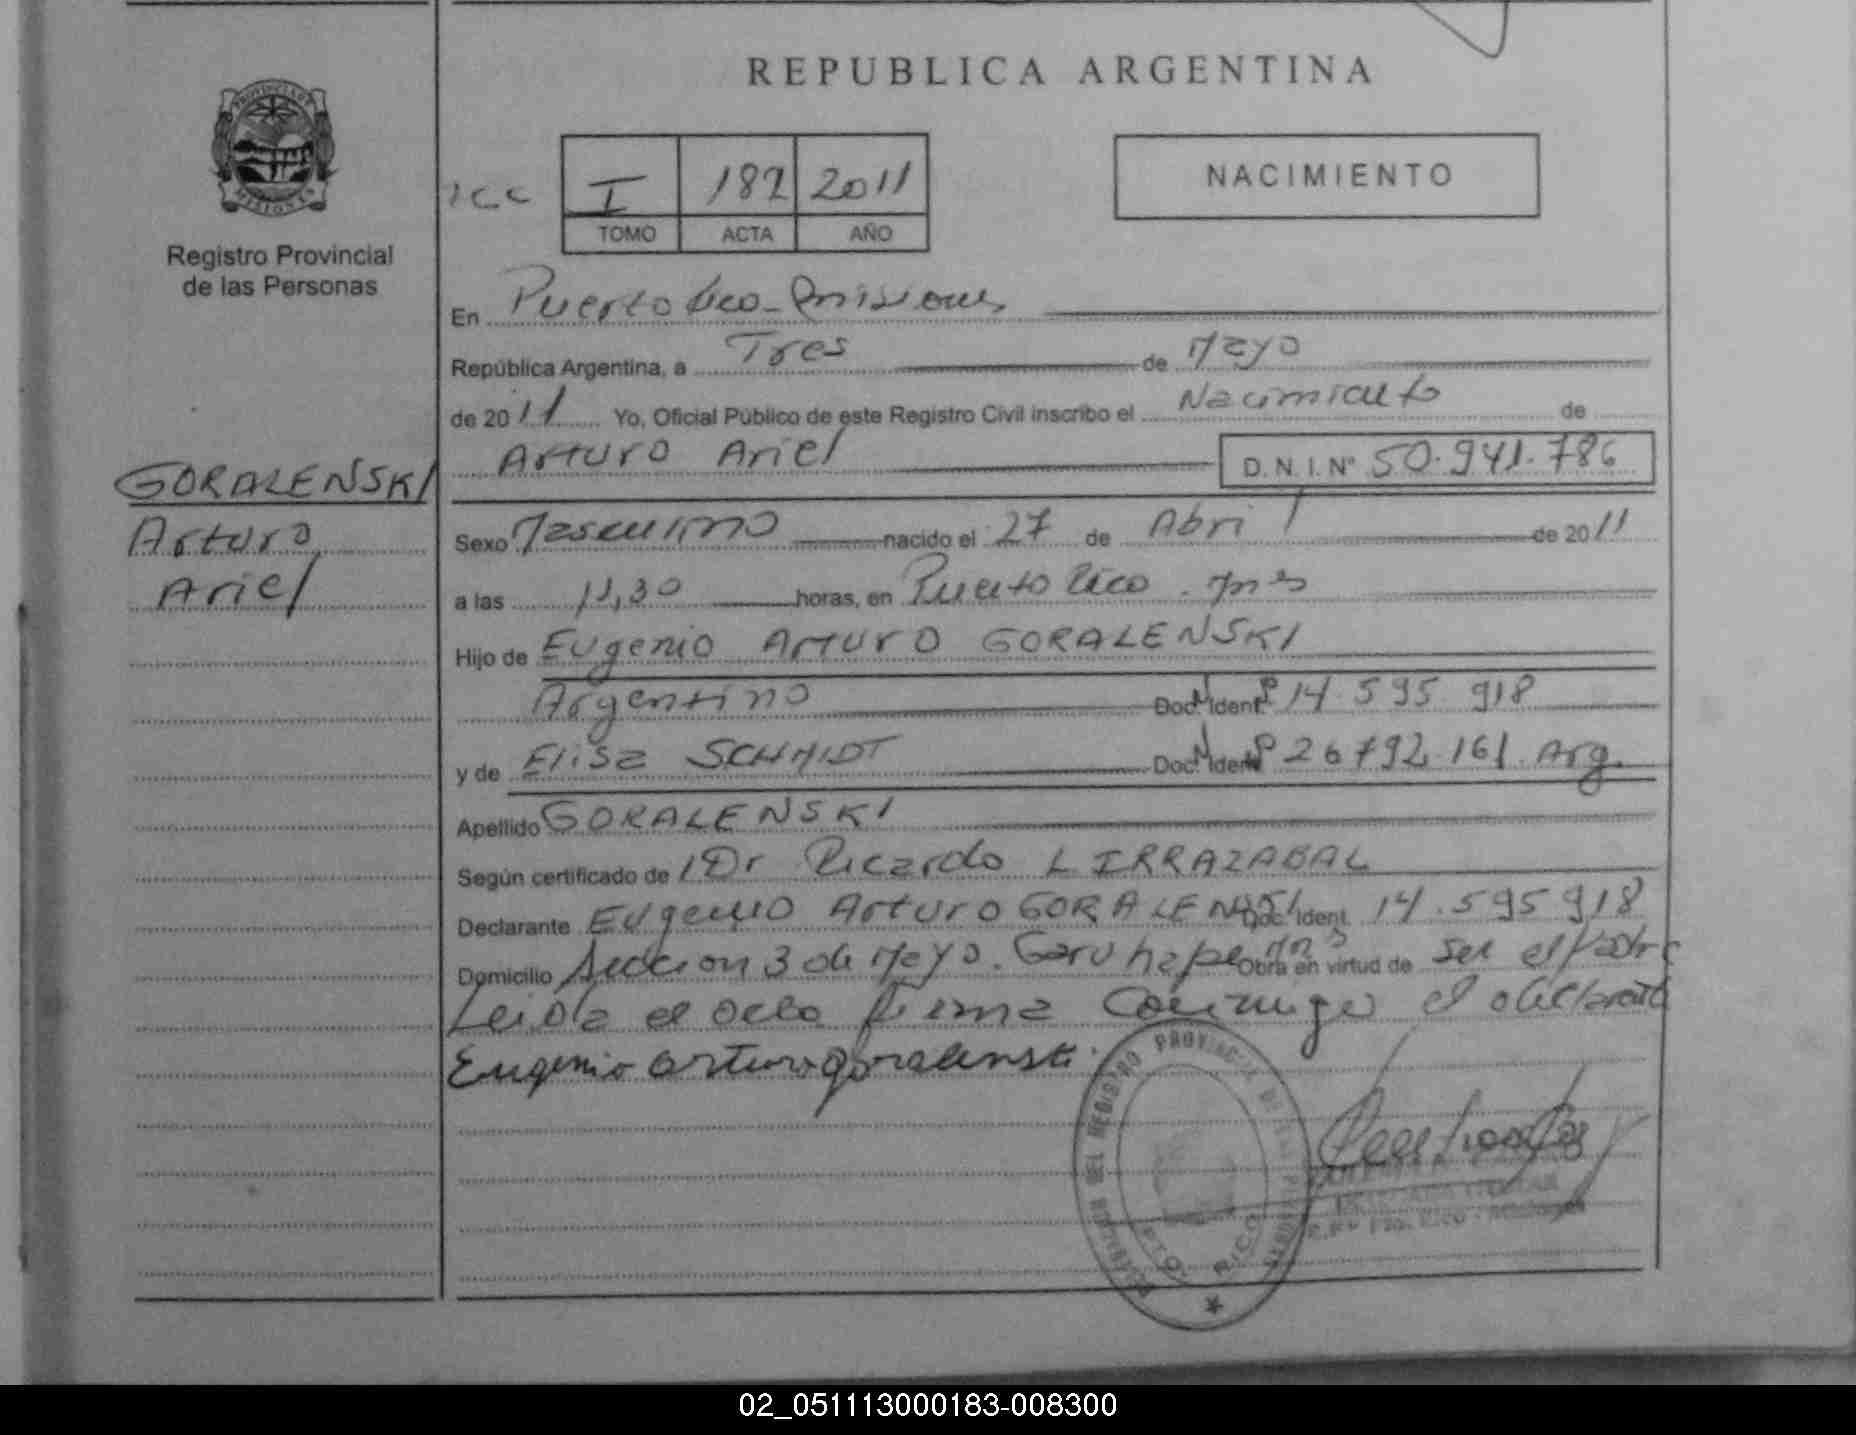 REPUBLICA ARGENTINA
PROVINCIA DE
MISIONES
Registro Provincial
de las Personas
I 182 2011
TOMO ACTA AÑO
NACIMIENTO
En Puerto Rico - Misiones
República Argentina, a Tres de Mayo
de 2011 Yo, Oficial Público de este Registro Civil inscribo el Nacimiento de
Arturo Ariel D.N.I.Nº 50.941.786
GORALENSKI
Arturo
Ariel
Sexo Masculino nacido el 27 de Abril de 2011
a las 11,30 horas, en Puerto Rico. Mns
Hijo de Eugenio Arturo GORALENSKI
Argentino Doc. Ident. Nº 14.595.918
y de Elisa SCHMIDT Doc. Ident. Nº 26792.161. Arg.
Apellido GORALENSKI
Según certificado de Dr Ricardo L IRRAZABAL
Declarante Eugenio Arturo GORALENSKI Doc. Ident. 14.595918
Domicilio Seccion 3 de Mayo. Garuhape Mns Obra en virtud de ser el Padre
Leida el acta firma conmigo el declarante
Eugenio arturo goralenski.
REGISTRO PROVINCIAL DE LAS PERSONAS
PTO. RICO
02_051113000183-008300